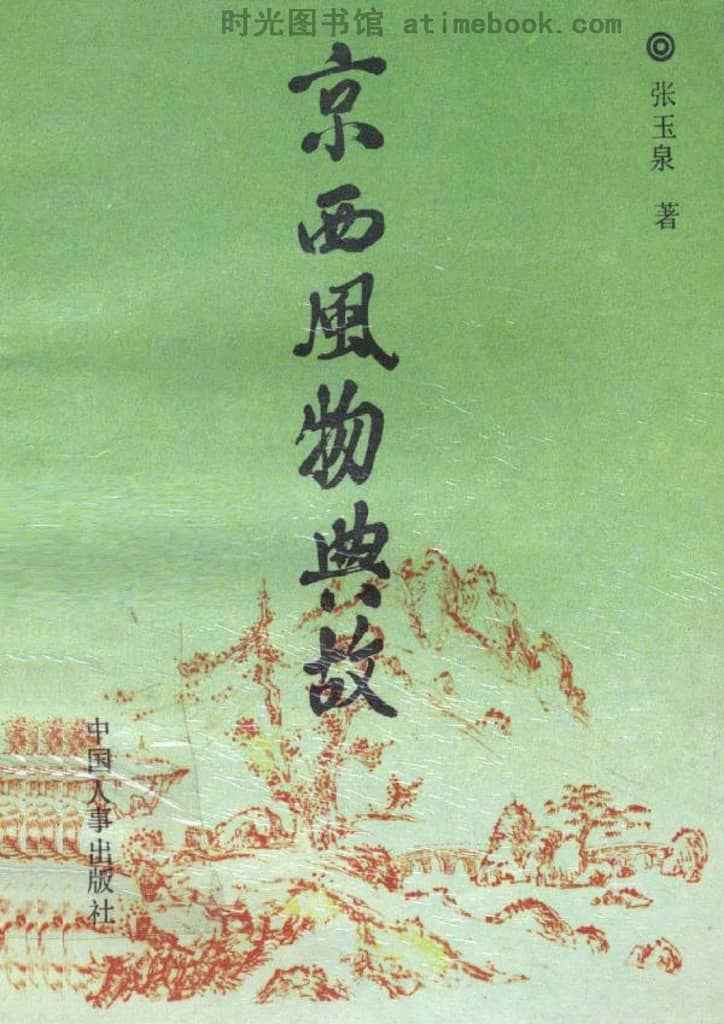 时光图书馆 atimebook.com
◎张玉泉 著
京西風物典故
中国人事出版社